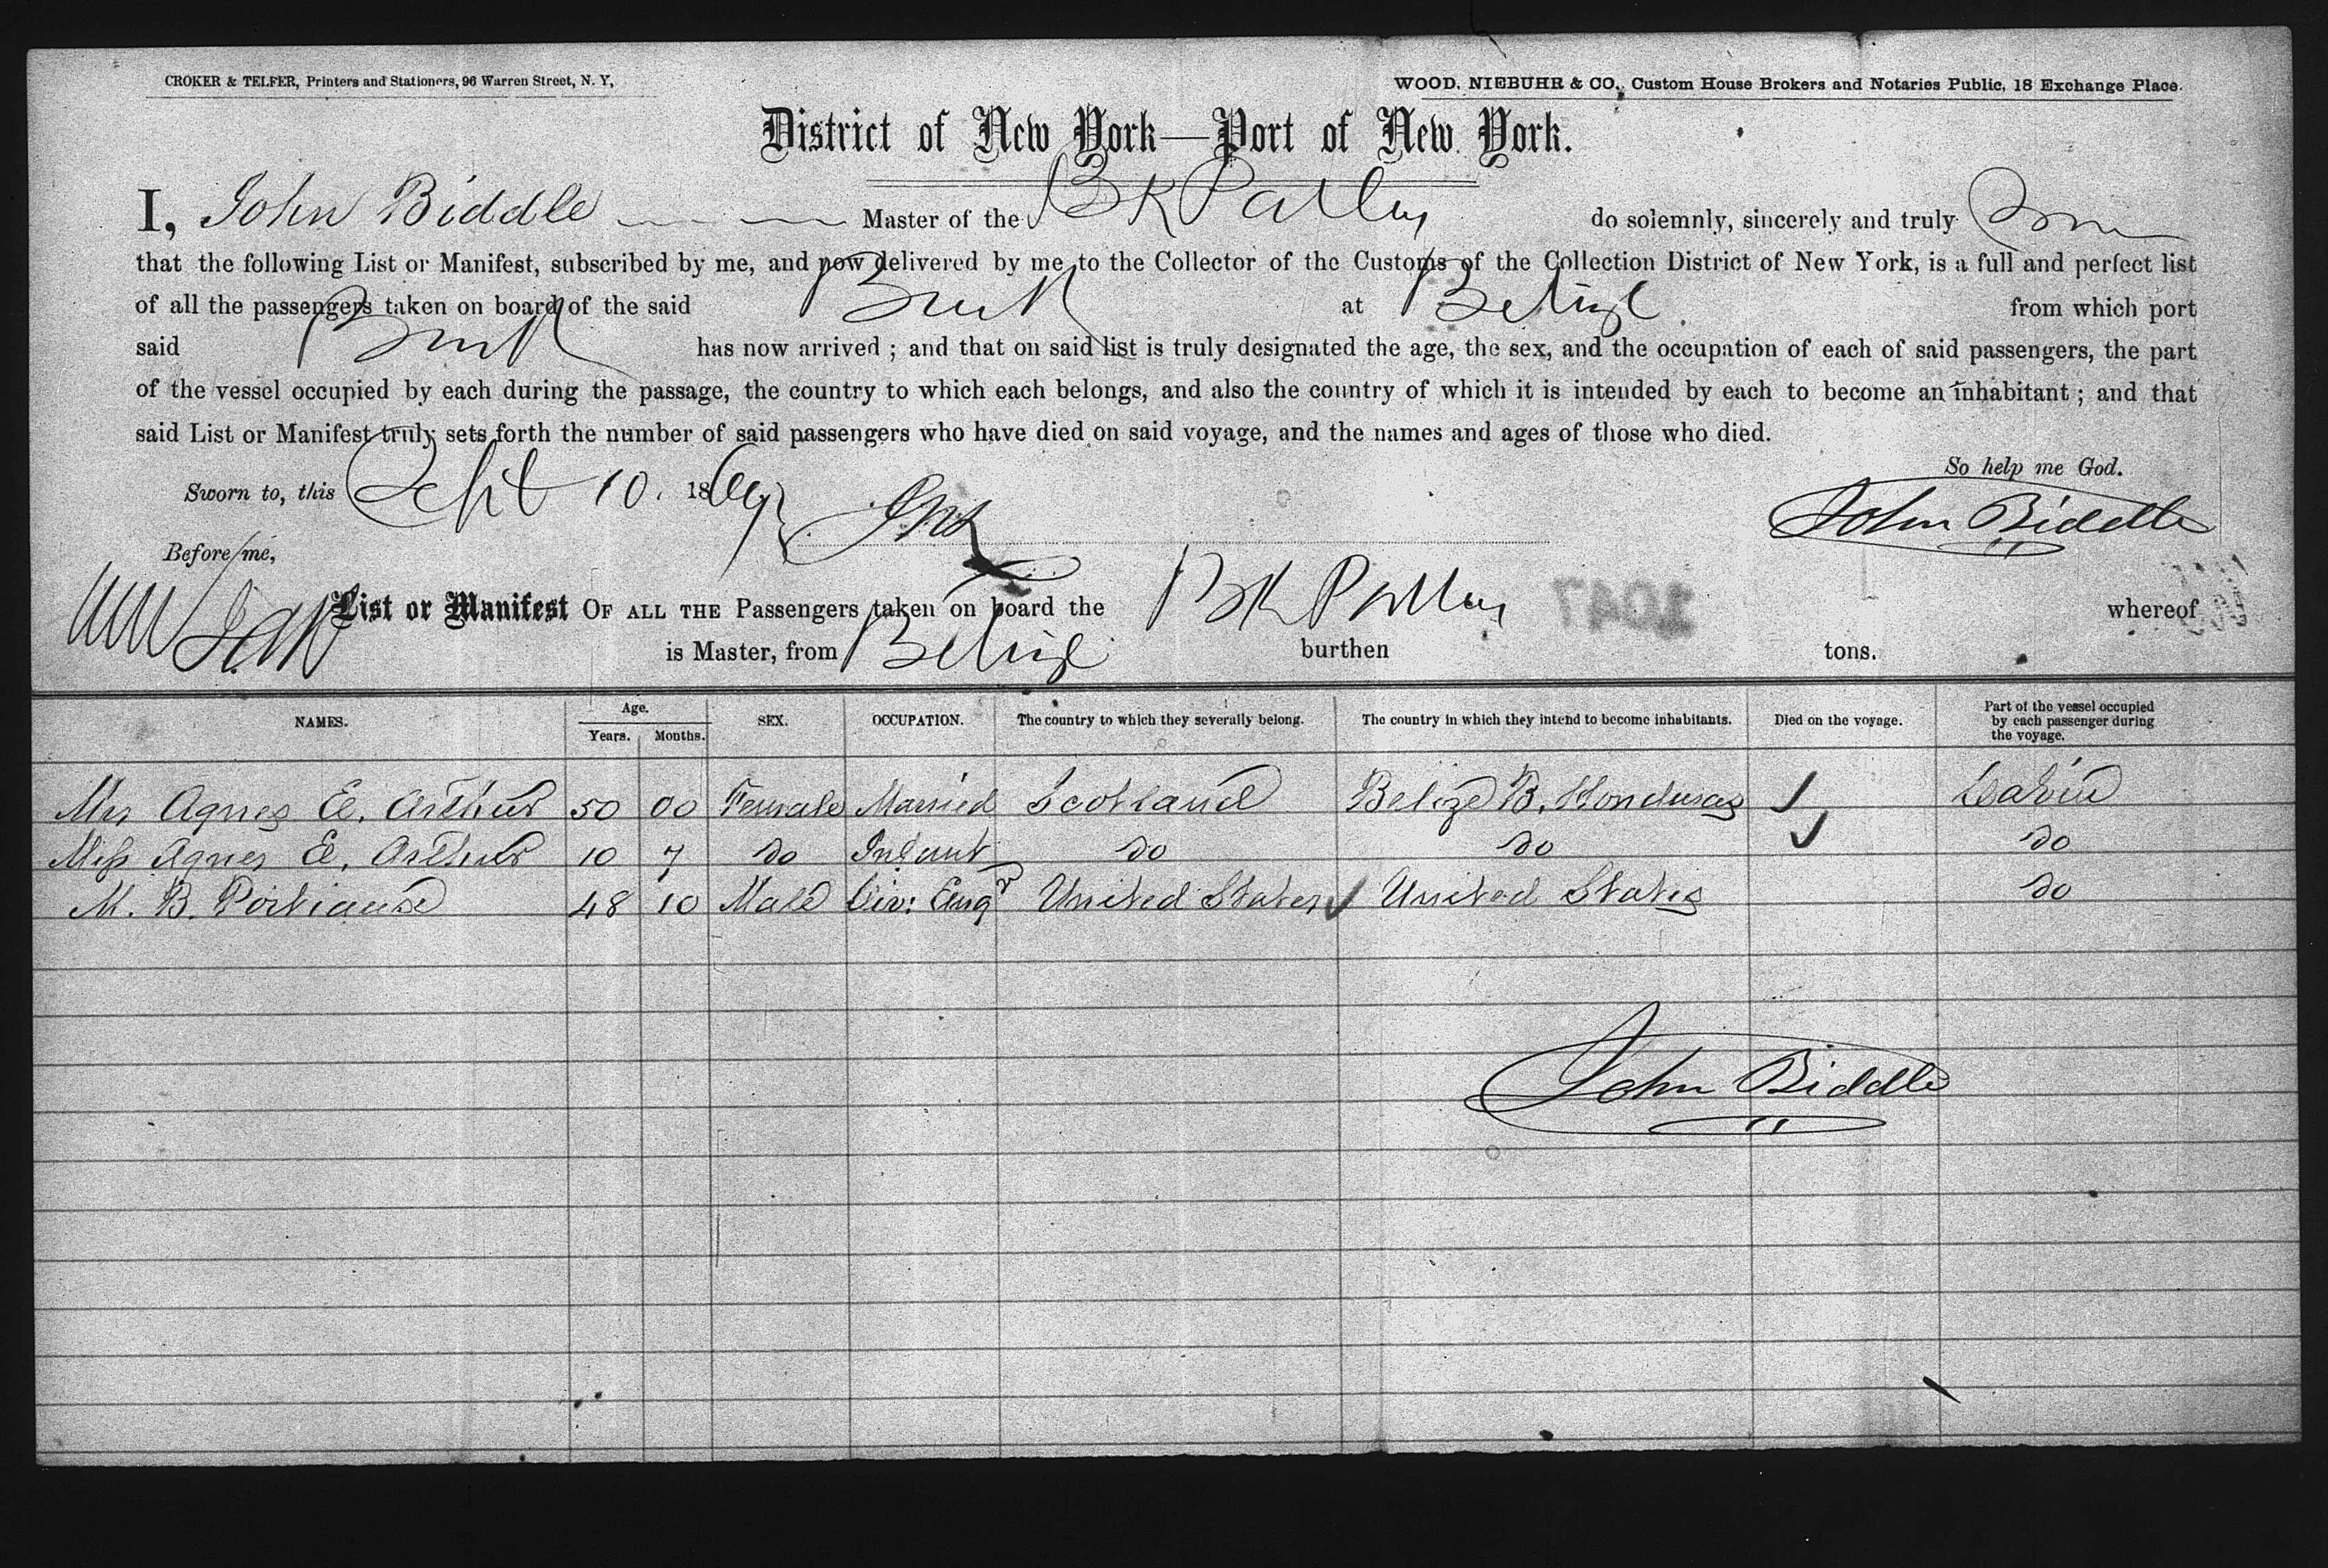 CROKER & TELFER, Printers and Stationers, 96 Warren Street, N. Y, WOOD, NIEBUHR & CO., Custom House Brokers and Notaries Public, 18 Exchange Place.
District of New York—Port of New York.
I, John Biddle Master of the Bk do solemnly, sincerely and truly
that the following List or Manifest, subscribed by me, and now delivered by me to the Collector of the Customs of the Collection District of New York, is a full and perfect list
of all the passengers taken on board of the said Bark at Belize from which port
said Bark has now arrived ; and that on said list is truly designated the age, the sex, and the occupation of each of said passengers, the part
of the vessel occupied by each during the passage, the country to which each belongs, and also the country of which it is intended by each to become an inhabitant ; and that
said List or Manifest truly sets forth the number of said passengers who have died on said voyage, and the names and ages of those who died.
So help me God.
Sworn to, this Sept 10. 1869 John Biddle
Before me,
List or Manifest OF ALL THE Passengers taken on board the Bk whereof
1047
is Master, from Belize burthen tons.
NAMES. Age. Years. Months. SEX. OCCUPATION. The country to which they severally belong. The country in which they intend to become inhabitants. Died on the voyage. Part of the vessel occupied by each passenger during the voyage.
Mrs Agnes E. Arthur 50 00 Female Married Scotland Belize B. Honduras Cabin
Miss Agnes E. Arthur 10 7 do Infant do do do
M. B. 48 10 Male Civ: Engr United States United States do
John Biddle